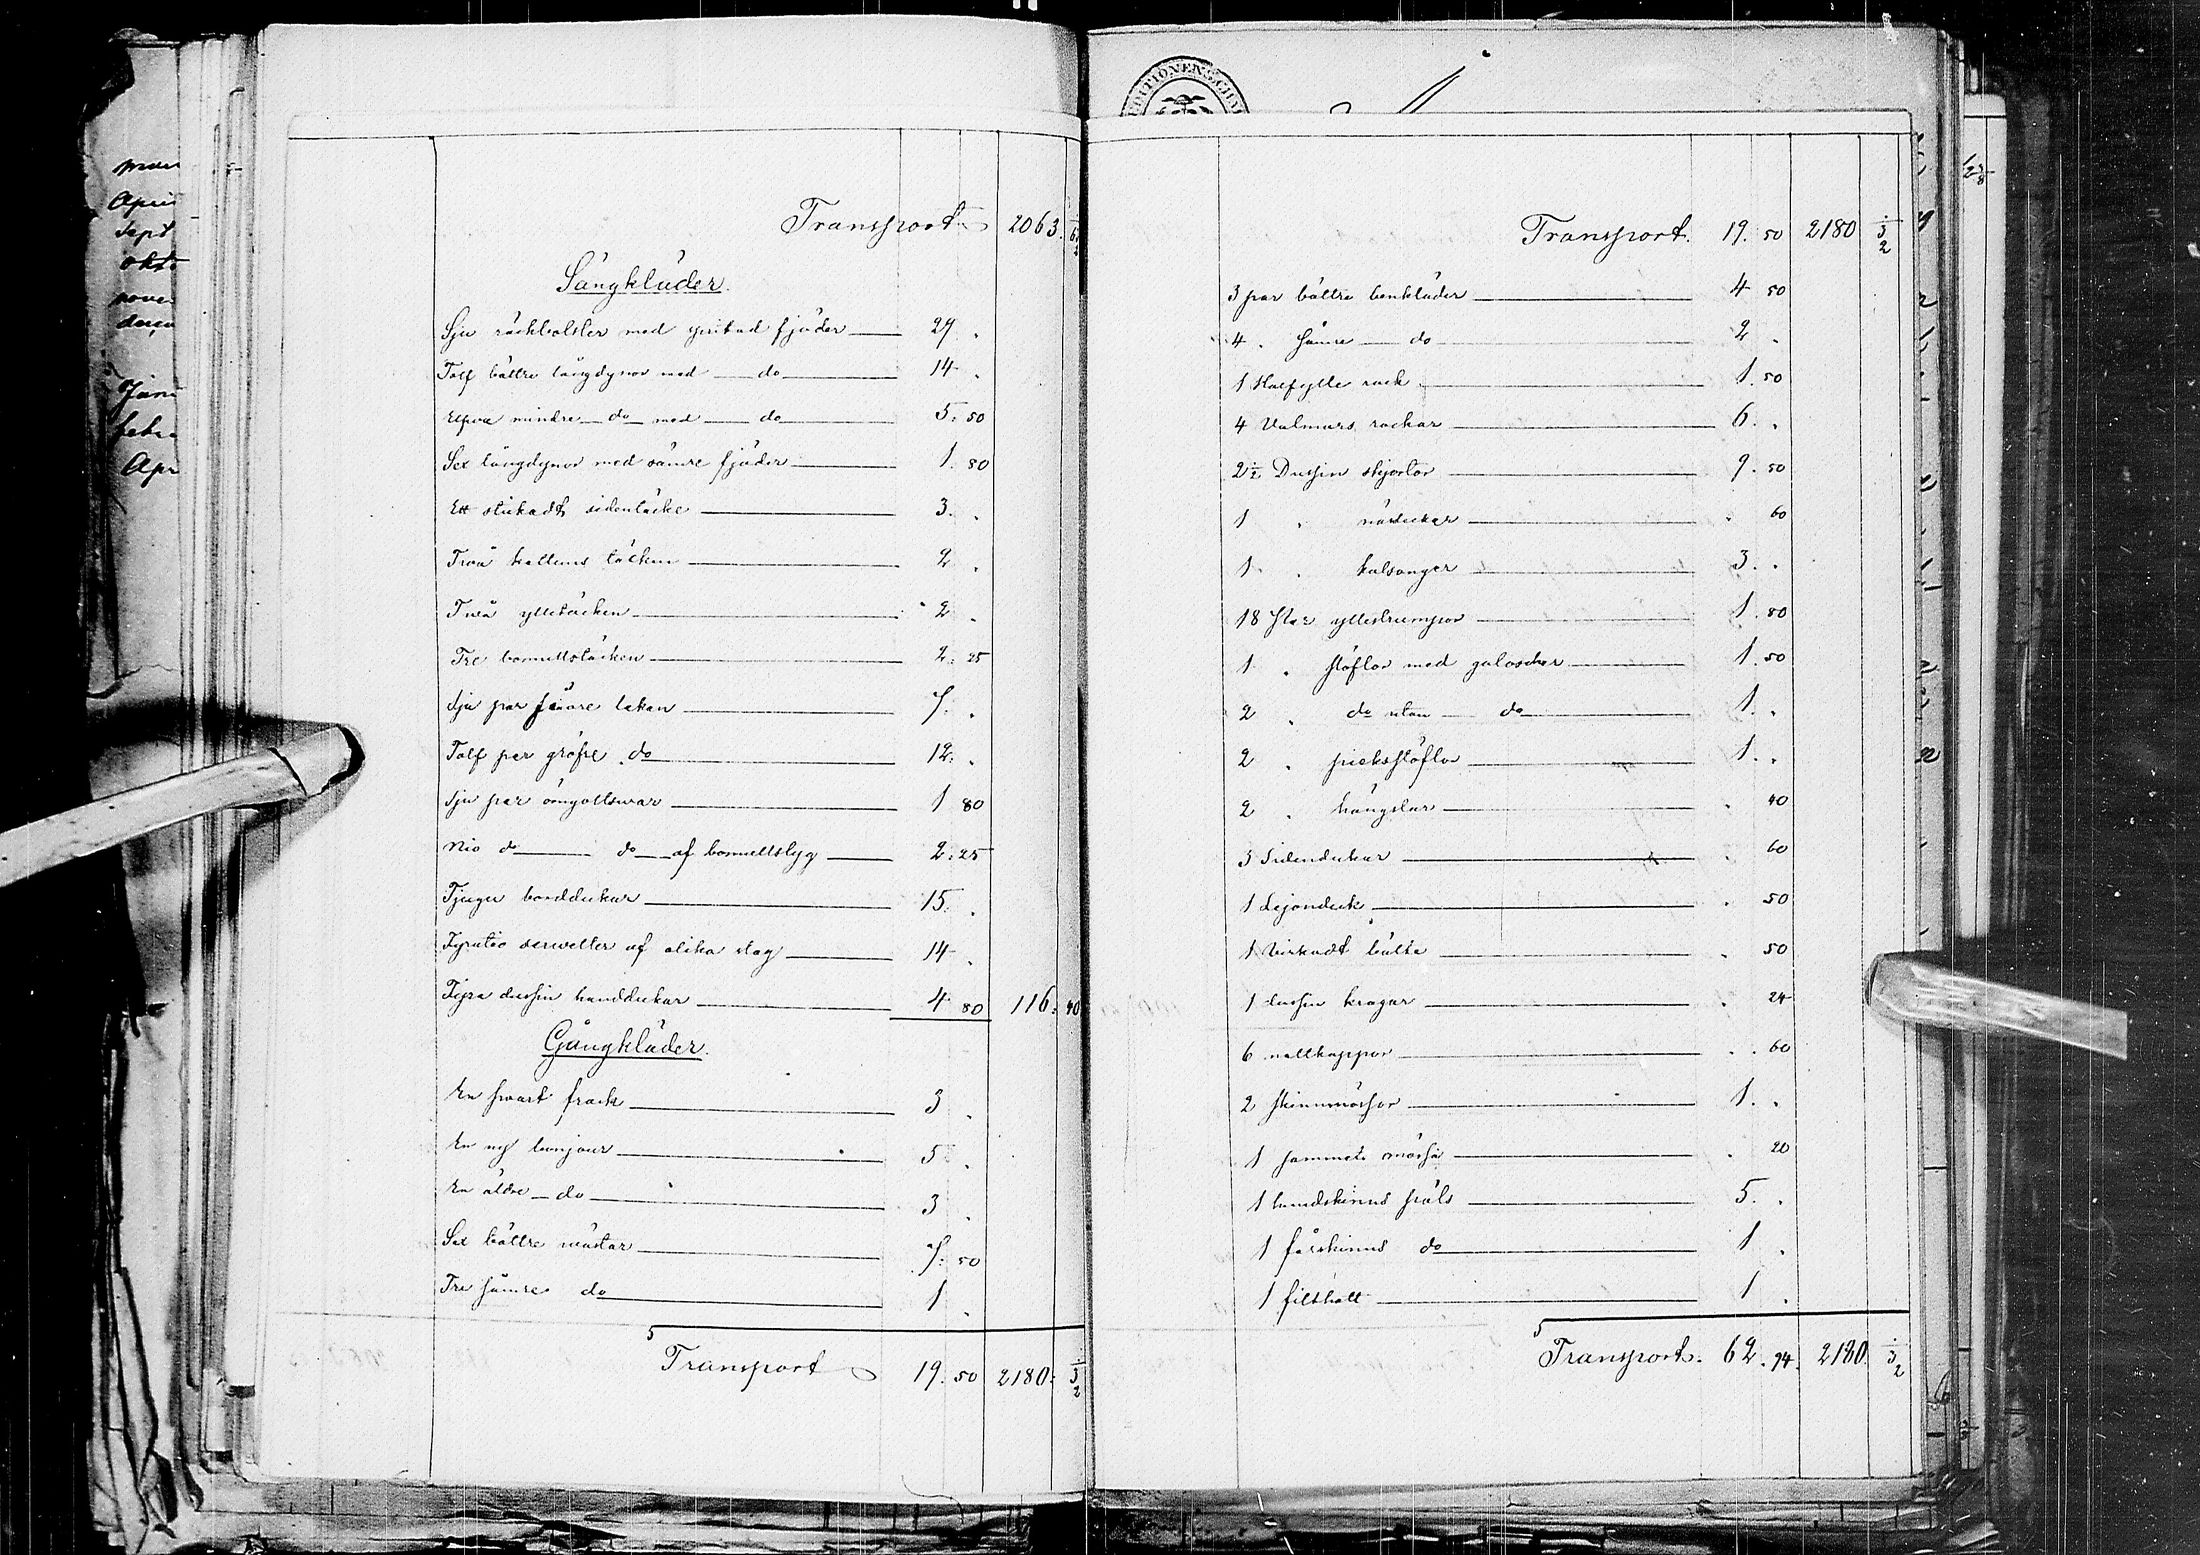 Transport 2063. 62
Sängkläder.
Sju räckbolster med spritad fjäder 29 .
Tolf bättre långdynor med do 14 .
Elfva mindre do med do 5. 50
Sex långdynor med sämre fjäder 1. 80
Ett stickadt sidentäcke 3. .
Två kattuns täcken 2 .
Två ylletäcken 2 .
Tre bomullstäcken 2. 25
Sju par finare lakan 7. .
Tolf par gröfre do 12. .
Sju par örngottsvar 1 80
Nio do do af bomullstyg 2. 25
Tjugu borddukar 15. .
Fyratio servetter af olika slag 14 .
Fyra dussin handdukar 4 80 116. 40
Gångkläder.
En svart frack 3 .
En ny bonjour 5 .
En äldre do 3 .
Sex bättre västar 7. 50
Tre sämre do 1 .
Transport 19. 50 2180. 2
Transport. 19. 50 2180 2
3 par bättre benkläder 4 50
4 . sämre do 2 .
1 Halfylle rock 1. 50
4 Valmars rockar 6. .
2½ Dussin skjortor 9. 50
1 . näsdukar . 60
1 . kalsonger 3. .
18 Par yllestrumpor 1. 80
1 . stöflor med galoscher 1. 50
2 . do utan do 1. .
2 . pieksstöflor 1. .
2 . hängslar . 40
3 Sidendukar . 60
1 Lejonduk . 50
1 Virkadt bälte . 50
1 dussin kragar . 24
6 nattkappor . 60
2 skinnmössor 1. .
1 sammets mössa . 20
1 hundskinns päls 5. .
1 fårskinns do 1 .
1 filthatt 1 .
Transport. 62. 94. 2180. 2